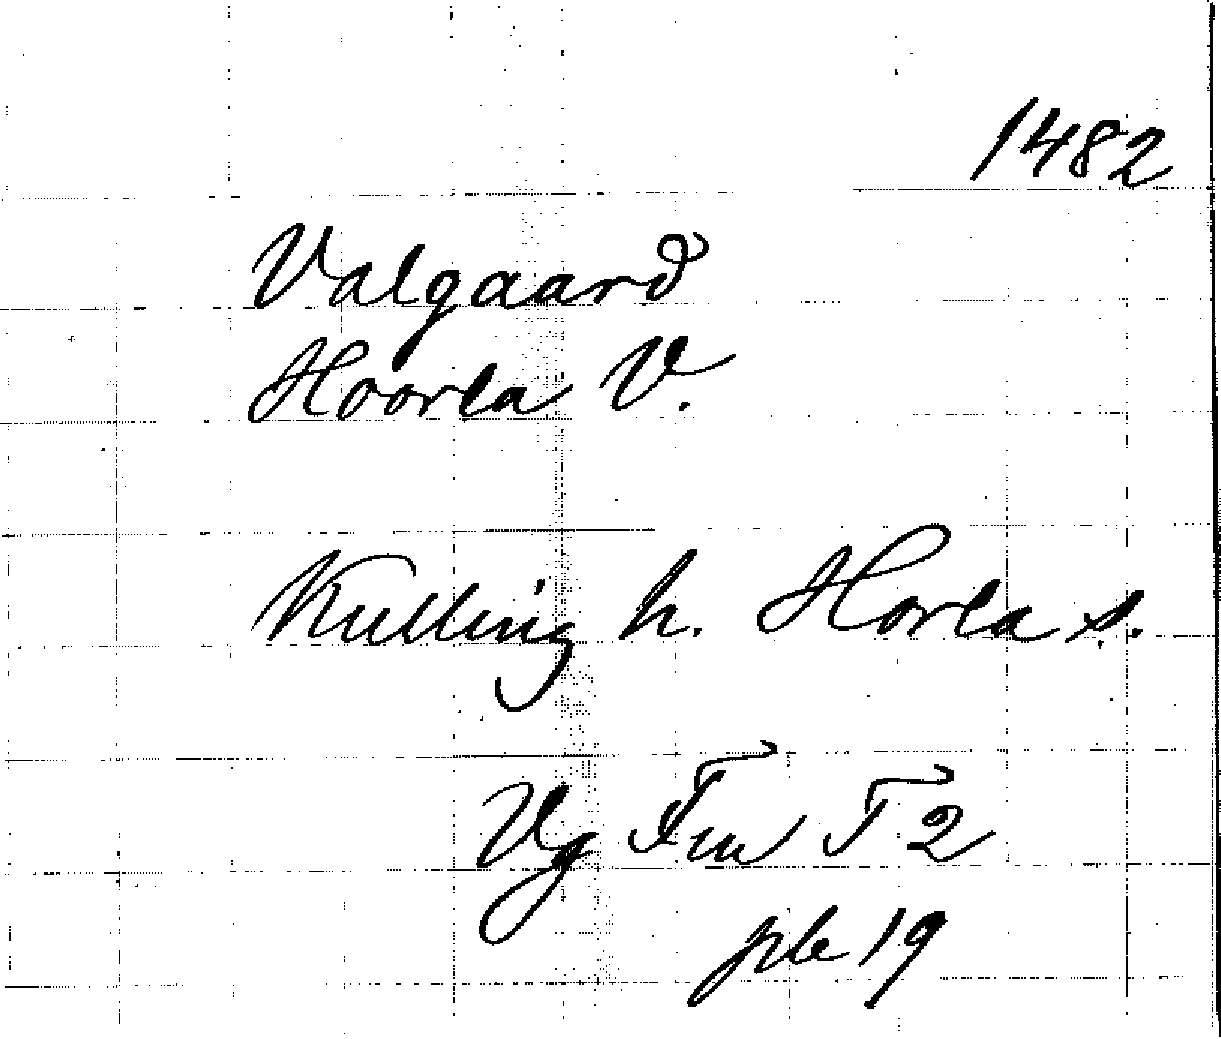 1482
Valgaard
Hoorla V.
Kulling h. Horla s.
Vg Fm T 2
ple 19